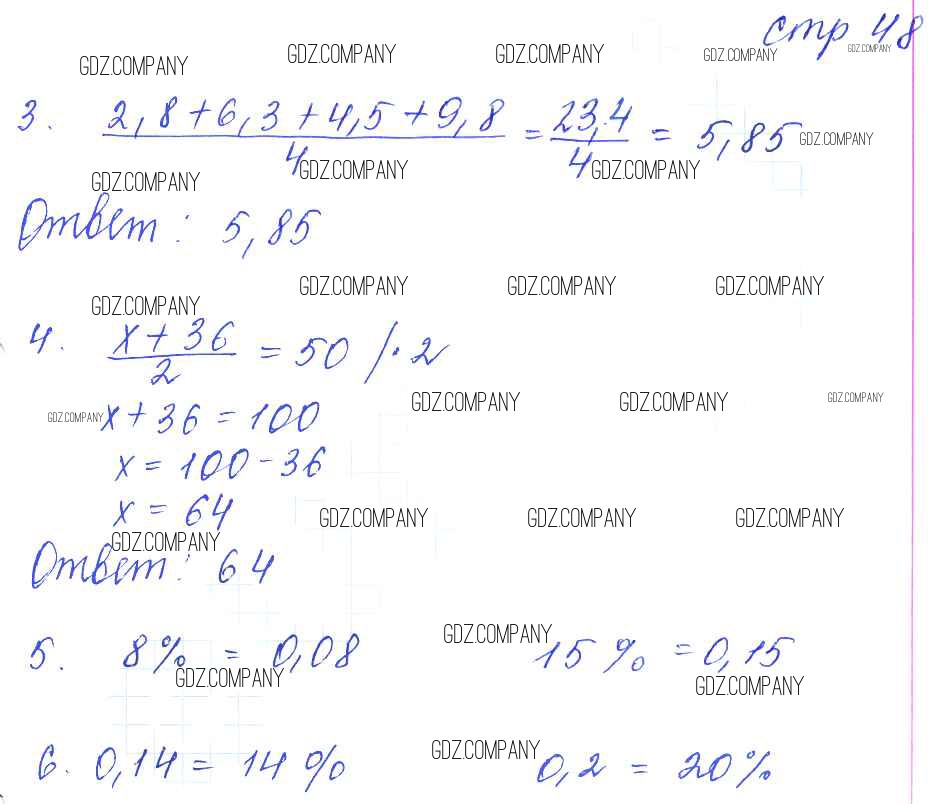 стр 48
GDZ.COMPANY GDZ.COMPANY GDZ.COMPANY GDZ.COMPANY GDZ.COMPANY
3. (2,8+6,3+4,5+9,8)/4 = 23,4/4 = 5,85 GDZ.COMPANY
GDZ.COMPANY GDZ.COMPANY GDZ.COMPANY
Ответ: 5,85
GDZ.COMPANY GDZ.COMPANY GDZ.COMPANY GDZ.COMPANY
4. (x+36)/2 = 50 /·2
GDZ.COMPANY x+36=100 GDZ.COMPANY GDZ.COMPANY GDZ.COMPANY
x=100-36
x=64 GDZ.COMPANY GDZ.COMPANY GDZ.COMPANY
GDZ.COMPANY
Ответ: 64
5. 8% = 0,08 GDZ.COMPANY 15% = 0,15
GDZ.COMPANY GDZ.COMPANY
6. 0,14 = 14% GDZ.COMPANY 0,2 = 20%